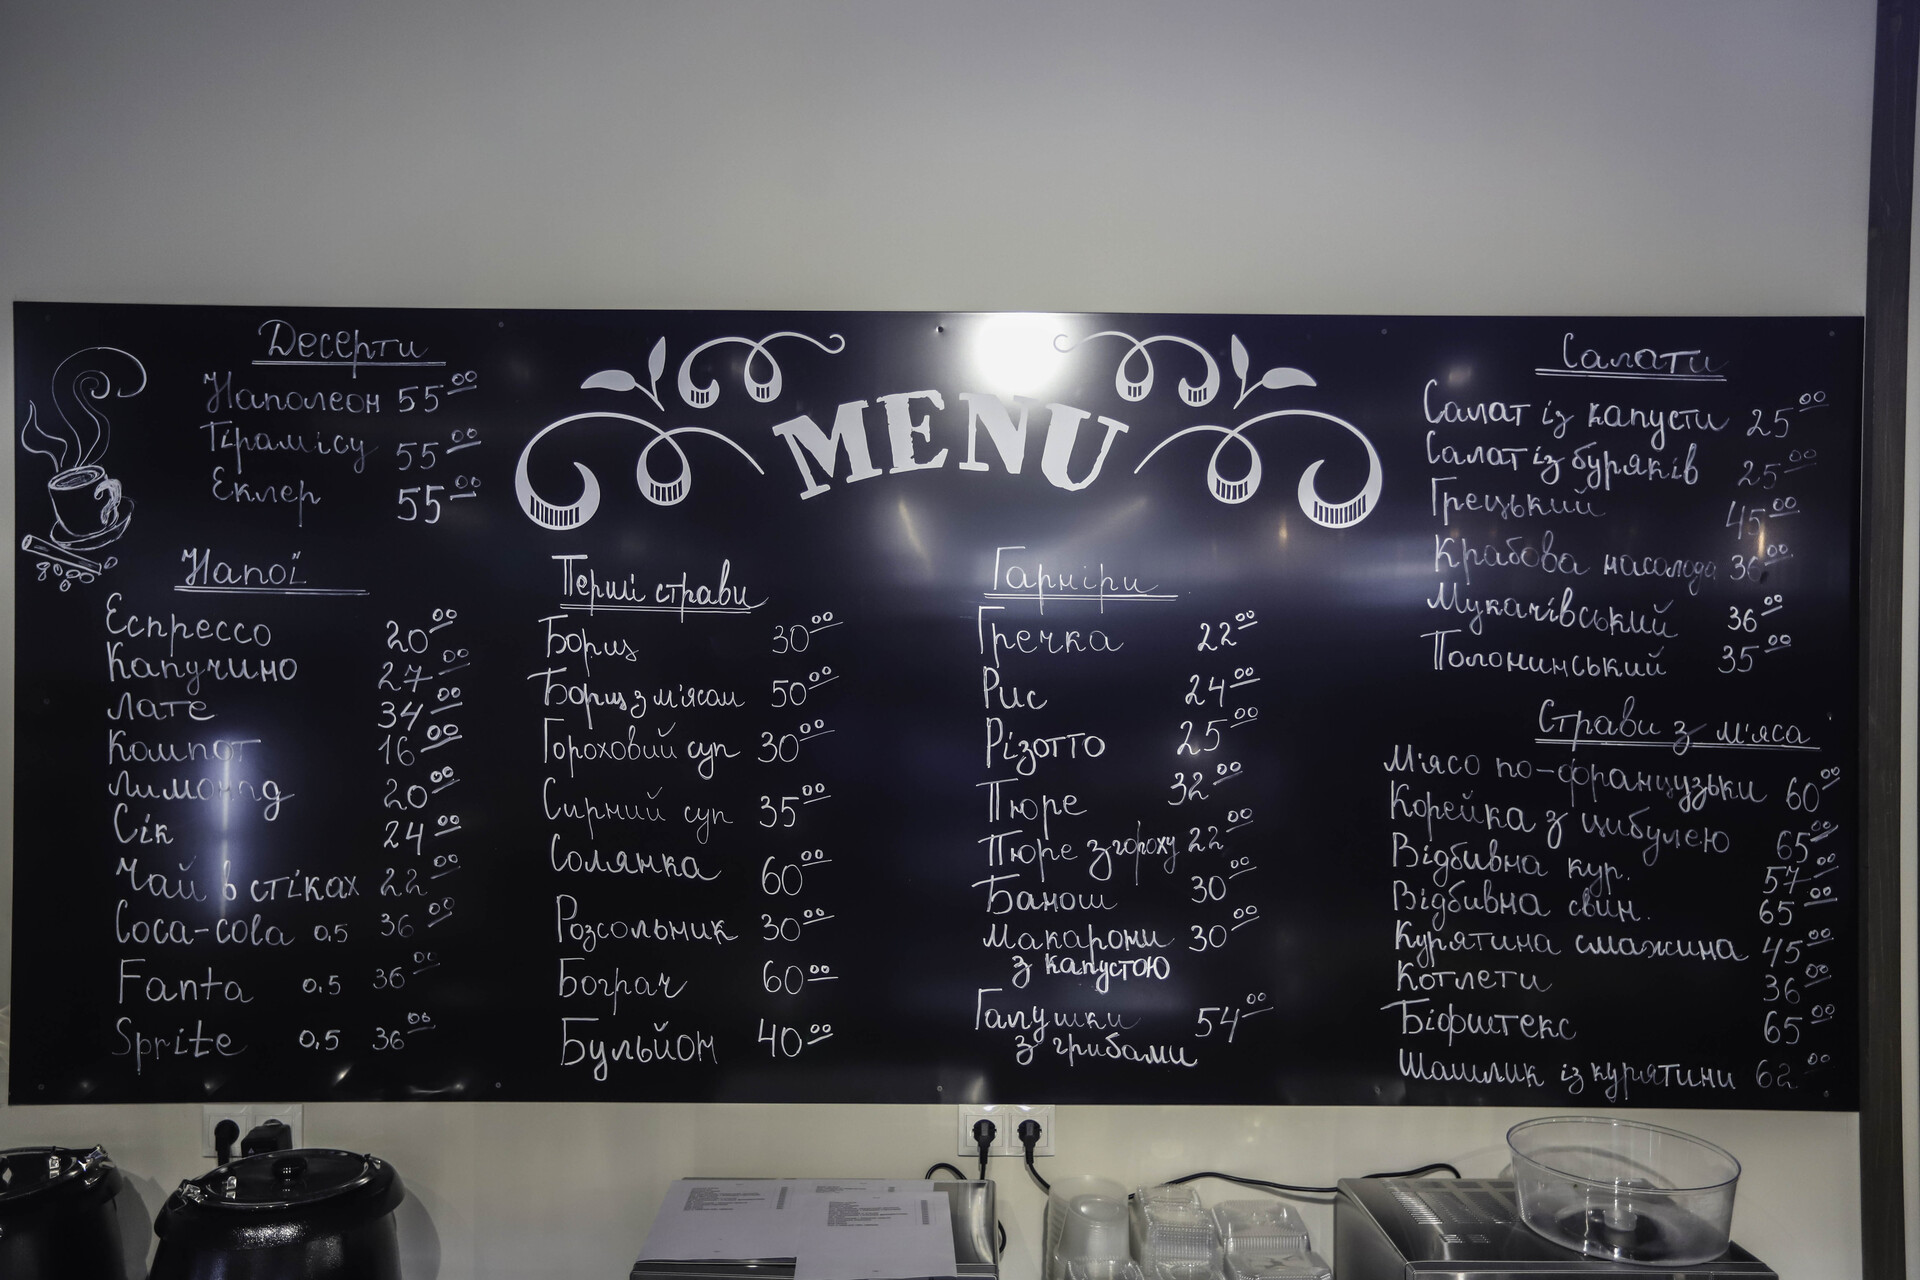 Десерти
Наполеон 55 00
Тірамісу 55 00
Еклер 55 00
Напої
Еспрессо 20 00
Капучино 27 00
Лате 34 00
Компот 16 00
Лимонад 20 00
Сік 24 00
Чай в стіках 22 00
Coca-cola 0.5 36 00
Fanta 0.5 36 00
Sprite 0.5 36 00
MENU
Перші страви
Борщ 30 00
Борщ з м'ясом 50 00
Гороховий суп 30 00
Сирний суп 35 00
Солянка 60 00
Розсольник 30 00
Бограч 60 00
Бульйон 40 00
Гарніри
Гречка 22 00
Рис 24 00
Різотто 25 00
Пюре 32 00
Пюре з гороху 22 00
Банош 30 00
Макарони 30 00
з капустою
Галушки 54 00
з грибами
Салати
Салат із капусти 25 00
Салат із буряків 25 00
Грецький 45 00
Крабова насолода 36 00
Мукачівський 36 00
Полонинський 35 00
Страви з м'яса
М'ясо по-французьки 60 00
Корейка з цибулею 65 00
Відбивна кур. 57 00
Відбивна свин. 65 00
Курятина смажина 45 00
Котлети 36 00
Біфштекс 65 00
Шашлик із курятини 62 00